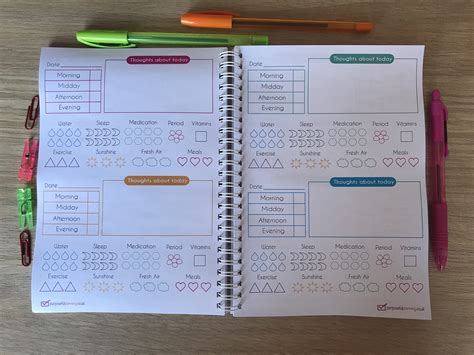 Thoughts about today
Date
Morning
Midday
Afternoon
Evening
Water Sleep Medication Period Vitamins
Exercise Sunshine Fresh Air Meals
Thoughts about today
Date
Morning
Midday
Afternoon
Evening
Water Sleep Medication Period Vitamins
Exercise Sunshine Fresh Air Meals
Thoughts about today
Date
Morning
Midday
Afternoon
Evening
Water Sleep Medication Period Vitamins
Exercise Sunshine Fresh Air Meals
Thoughts about today
Date
Morning
Midday
Afternoon
Evening
Water Sleep Medication Period Vitamins
Exercise Sunshine Fresh Air Meals